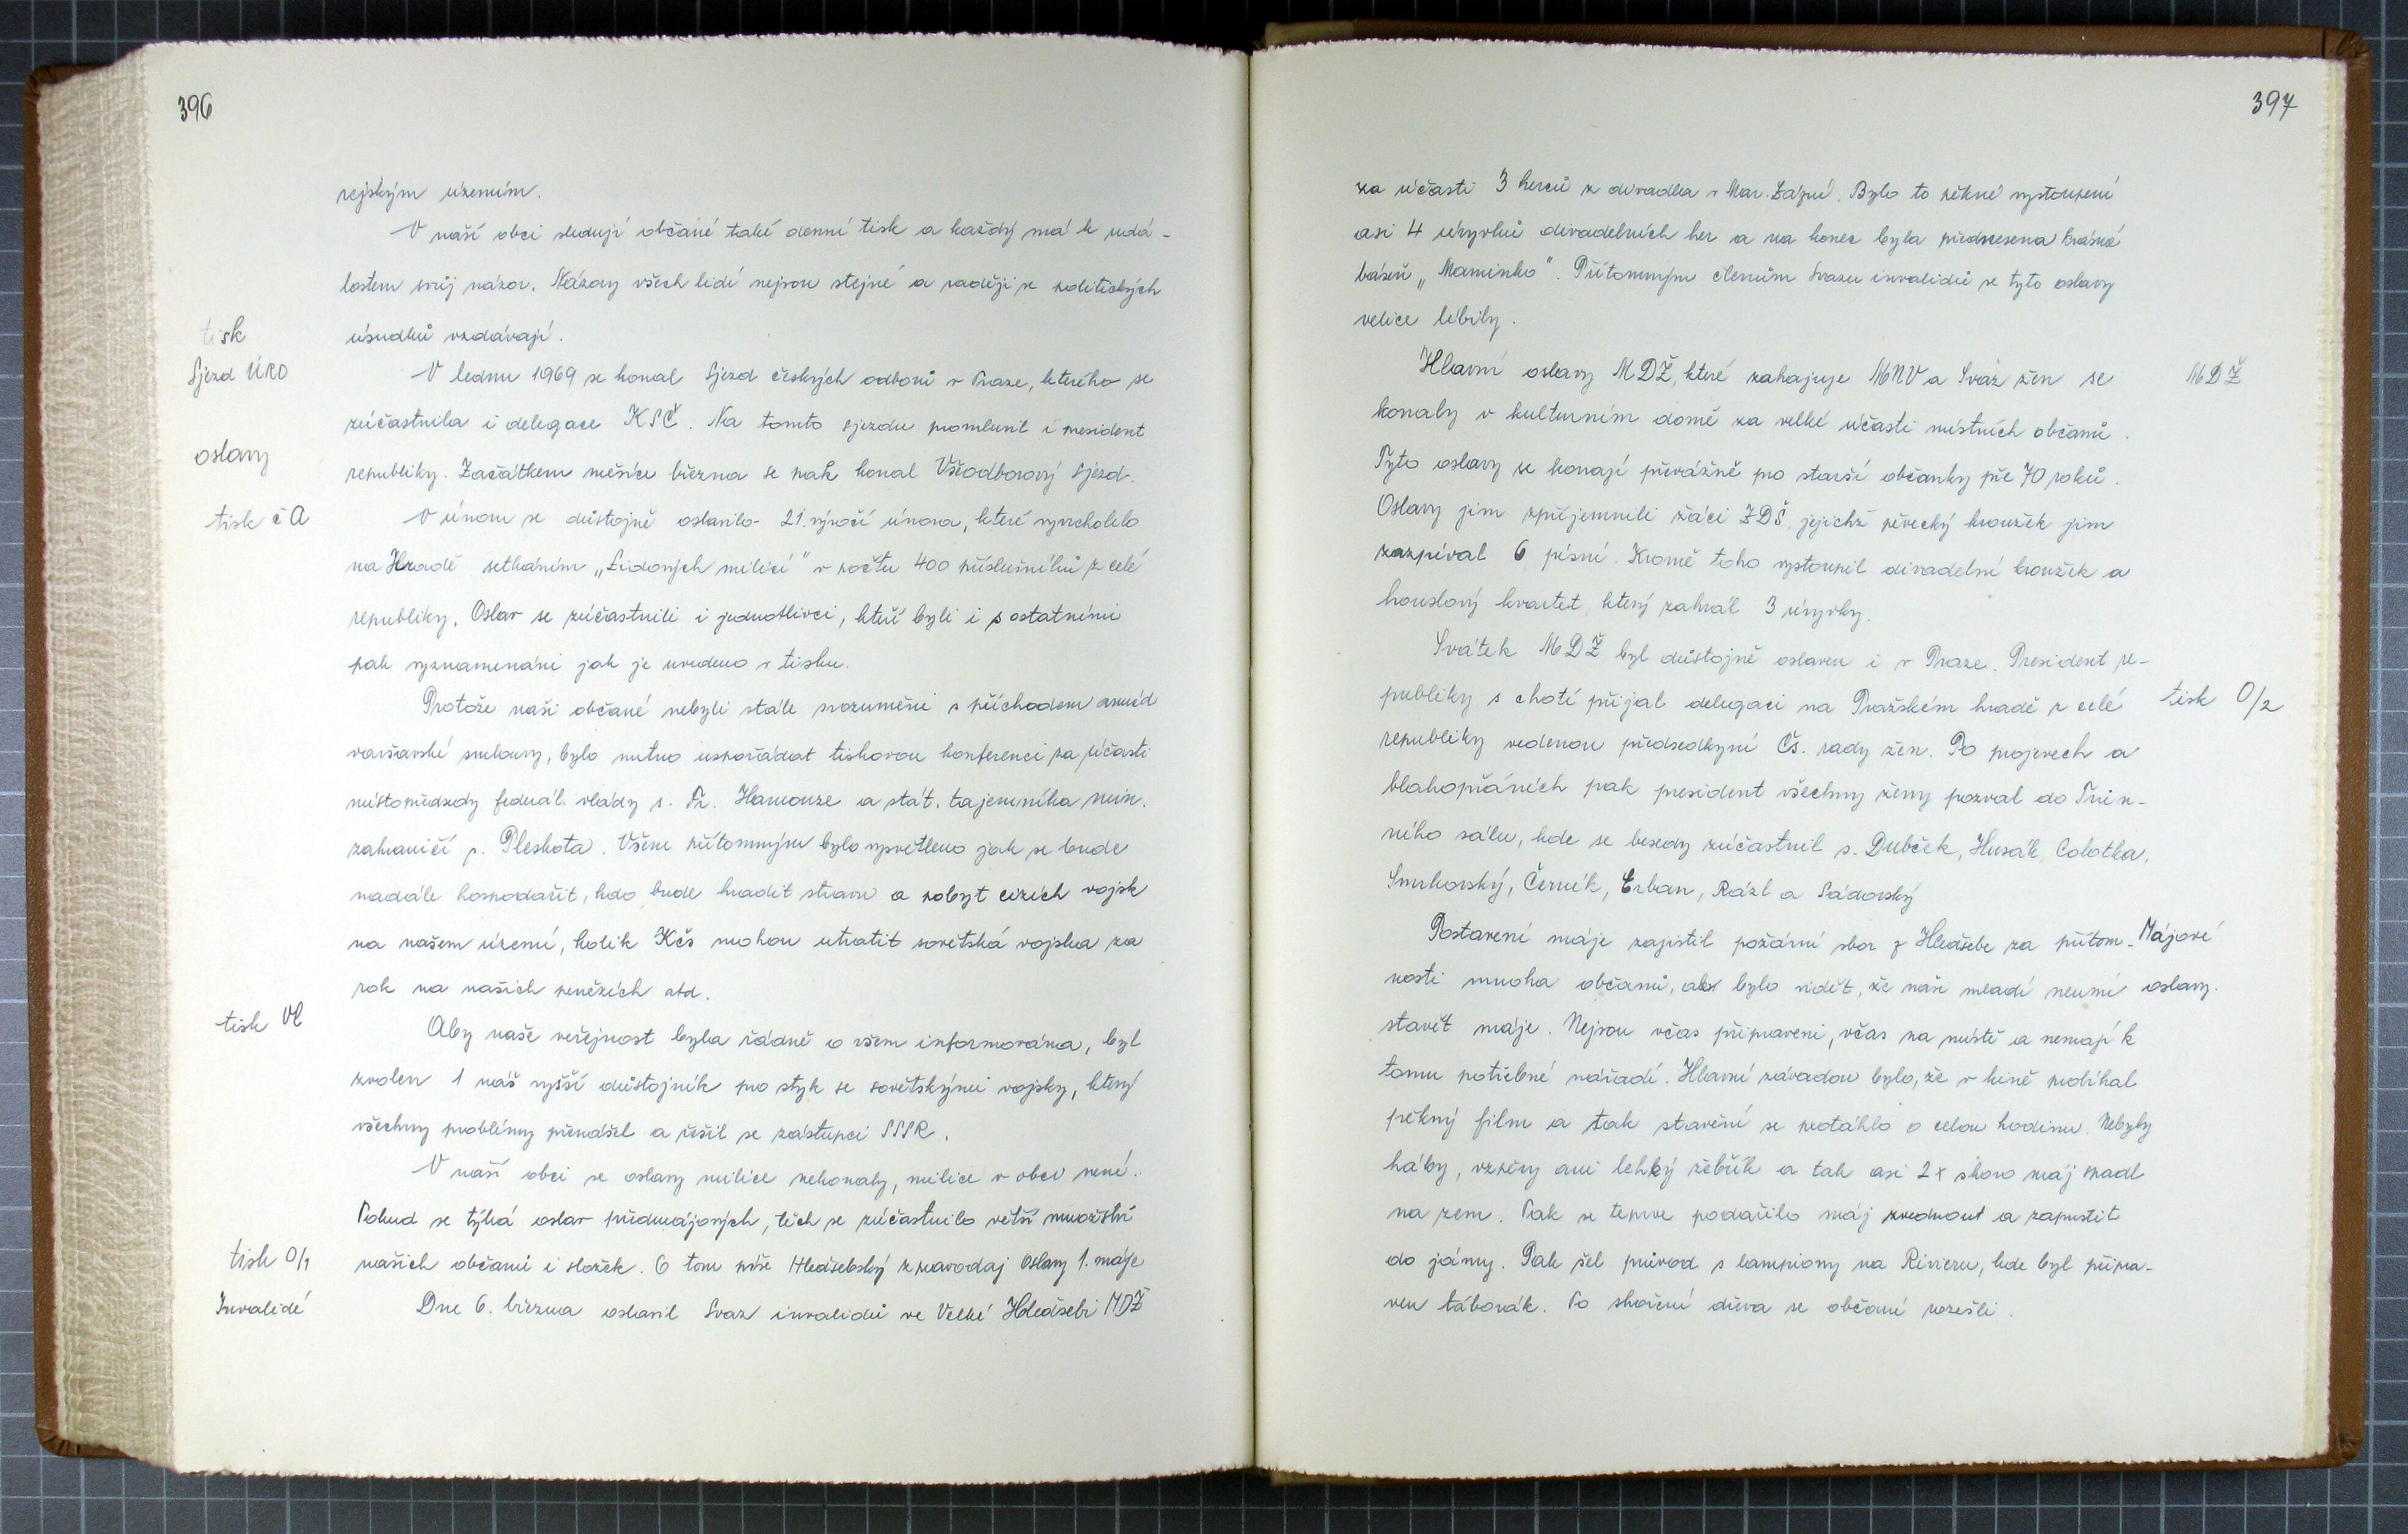 396
rejským územím.
V naší obci sledují občané také denní tisk a každý má k udá-
lostem svůj názor. Názory všech lidí nejsou stejné a raději se politických
tisk
úsudků vzdávají.
Sjezd ÚRO
V lednu 1969 se konal Sjezd českých odborů v Praze, kterého se
zúčastnila i delegace KSČ. Na tomto sjezdu promluvil i president
oslavy
republiky. Začátkem měsíce března se pak konal Všeodborový sjezd.
tisk č A
V únoru se důstojně oslavilo 21. výročí února, které vyvrcholilo
na Hradě setkáním „Lidových milicí" v počtu 400 příslušníků z celé
republiky. Oslav se zúčastnili i jednotlivci, kteří byli i s ostatními
pak vyznamenáni jak je uvedeno v tisku.
Protože naši občané nebyli stále srozuměni s příchodem armád
varšavské smlouvy, bylo nutno uspořádat tiskovou konferenci za účasti
místopředsedy federál. vlády s. Fr. Hamouze a stát. tajemníka min.
zahraničí s. Pleskota. Všem přítomným bylo vysvětleno jak se bude
nadále hospodařit, kdo bude hradit stravu a pobyt cizích vojsk
na našem území, kolik Kčs mohou utratit sovětská vojska za
rok na našich penězích atd.
tisk Vl
Aby naše veřejnost byla řádně o všem informována, byl
zvolen 1 náš vyšší důstojník pro styk se sovětskými vojsky, který
všechny problémy přenášel a řešil se zástupci SSSR.
V naší obci se oslavy milice nekonaly, milice v obci není.
Pokud se týká oslav předmájových, těch se zúčastnilo větší množství
tisk O/1
našich občanů i složek. O tom píše Hleďsebský zpravodaj Oslavy 1. máje
Invalidé
Dne 6. března oslavil Svaz invalidů ve Velké Hleďsebi MDŽ
397
za účasti 3 herců z divadla v Mar. Lázní. Bylo to pěkné vystoupení
asi 4 úryvků divadelních her a na konec byla přednesena krásná
báseň „Maminko". Přítomným členům Svazu invalidů se tyto oslavy
velice líbily.
Hlavní oslavy MDŽ, které zahajuje MNV a Svaz žen se
MDŽ
konaly v kulturním domě za velké účasti místních občanů.
Tyto oslavy se konají převážně pro starší občanky pře 70 roků.
Oslavy jim zpříjemnili žáci ZDŠ, jejichž pěvecký kroužek jim
zazpíval 6 písní. Kromě toho vystoupil divadelní kroužek a
houslový kvartet, který zahrál 3 úryvky.
Svátek MDŽ byl důstojně oslaven i v Praze. President re-
publiky s chotí přijal delegaci na Pražském hradě z celé
tisk O/2
republiky vedenou předsedkyní Čs. rady žen. Po projevech a
blahopřáních pak president všechny ženy pozval do Trůn-
ního sálu, kde se besedy zúčastnil s. Dubček, Husák, Colotka,
Smrkovský, Černík, Erban, Rázl a Sádovský
Postavení máje zajistil požární sbor z Hleďsebe za přítom-
Májové
nosti mnoha občanů, ale bylo vidět, že naši mladí neumí
oslavy.
stavět máje. Nejsou včas připraveni, včas na místě a nemají k
tomu potřebné nářadí. Hlavní závadou bylo, že v kině probíhal
pěkný film a tak stavění se protáhlo o celou hodinu. Nebyly
háky, vzpěry ani lehký žebřík a tak asi 2x skoro máj spadl
na zem. Pak se teprve podařilo máj zvednout a zapustit
do jámy. Pak šel průvod s lampiony na Rivieru, kde byl připra-
ven táborák. Po shoření dřeva se občané rozešli.